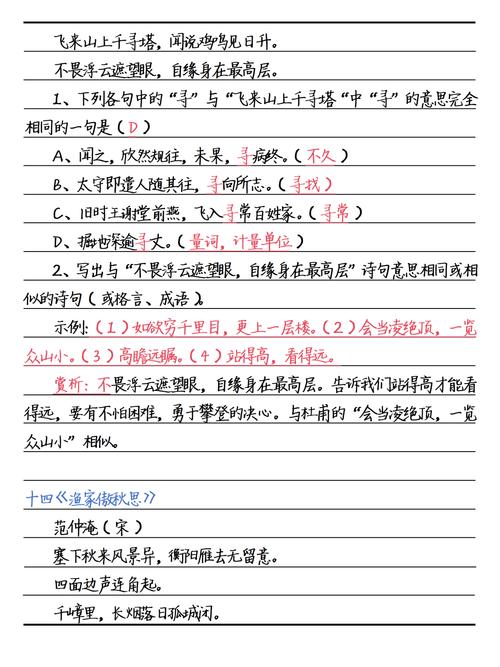 飞来山上千寻塔，闻说鸡鸣见日升。
不畏浮云遮望眼，自缘身在最高层。
1、下列各句中的“寻”与“飞来山上千寻塔“中“寻”的意思完全
相同的一句是（D）
A、闻之，欣然规往，未果，寻病终。（不久）
B、太守即遣人随其往，寻向所志。（寻找）
C、旧时王谢堂前燕，飞入寻常百姓家。（寻常）
D、掘地深逾寻丈。（量词，计量单位）
2、写出与“不畏浮云遮望眼，自缘身在最高层”诗句意思相同或相
似的诗句（或格言、成语）。
示例:（1）如欲穷千里目，更上一层楼。（2）会当凌绝顶，一览
众山小。（3）高瞻远瞩。（4）站得高，看得远。
赏析：不畏浮云遮望眼，自缘身在最高层。告诉我们站得高才能看
得远，要有不怕困难，勇于攀登的决心。与杜甫的“会当凌绝顶，一览
众山小”相似。
十四《渔家傲秋思》
范仲淹（宋）
塞下秋来风景异，衡阳雁去无留意。
四面边声连角起。
千嶂里，长烟落日孤城闭。